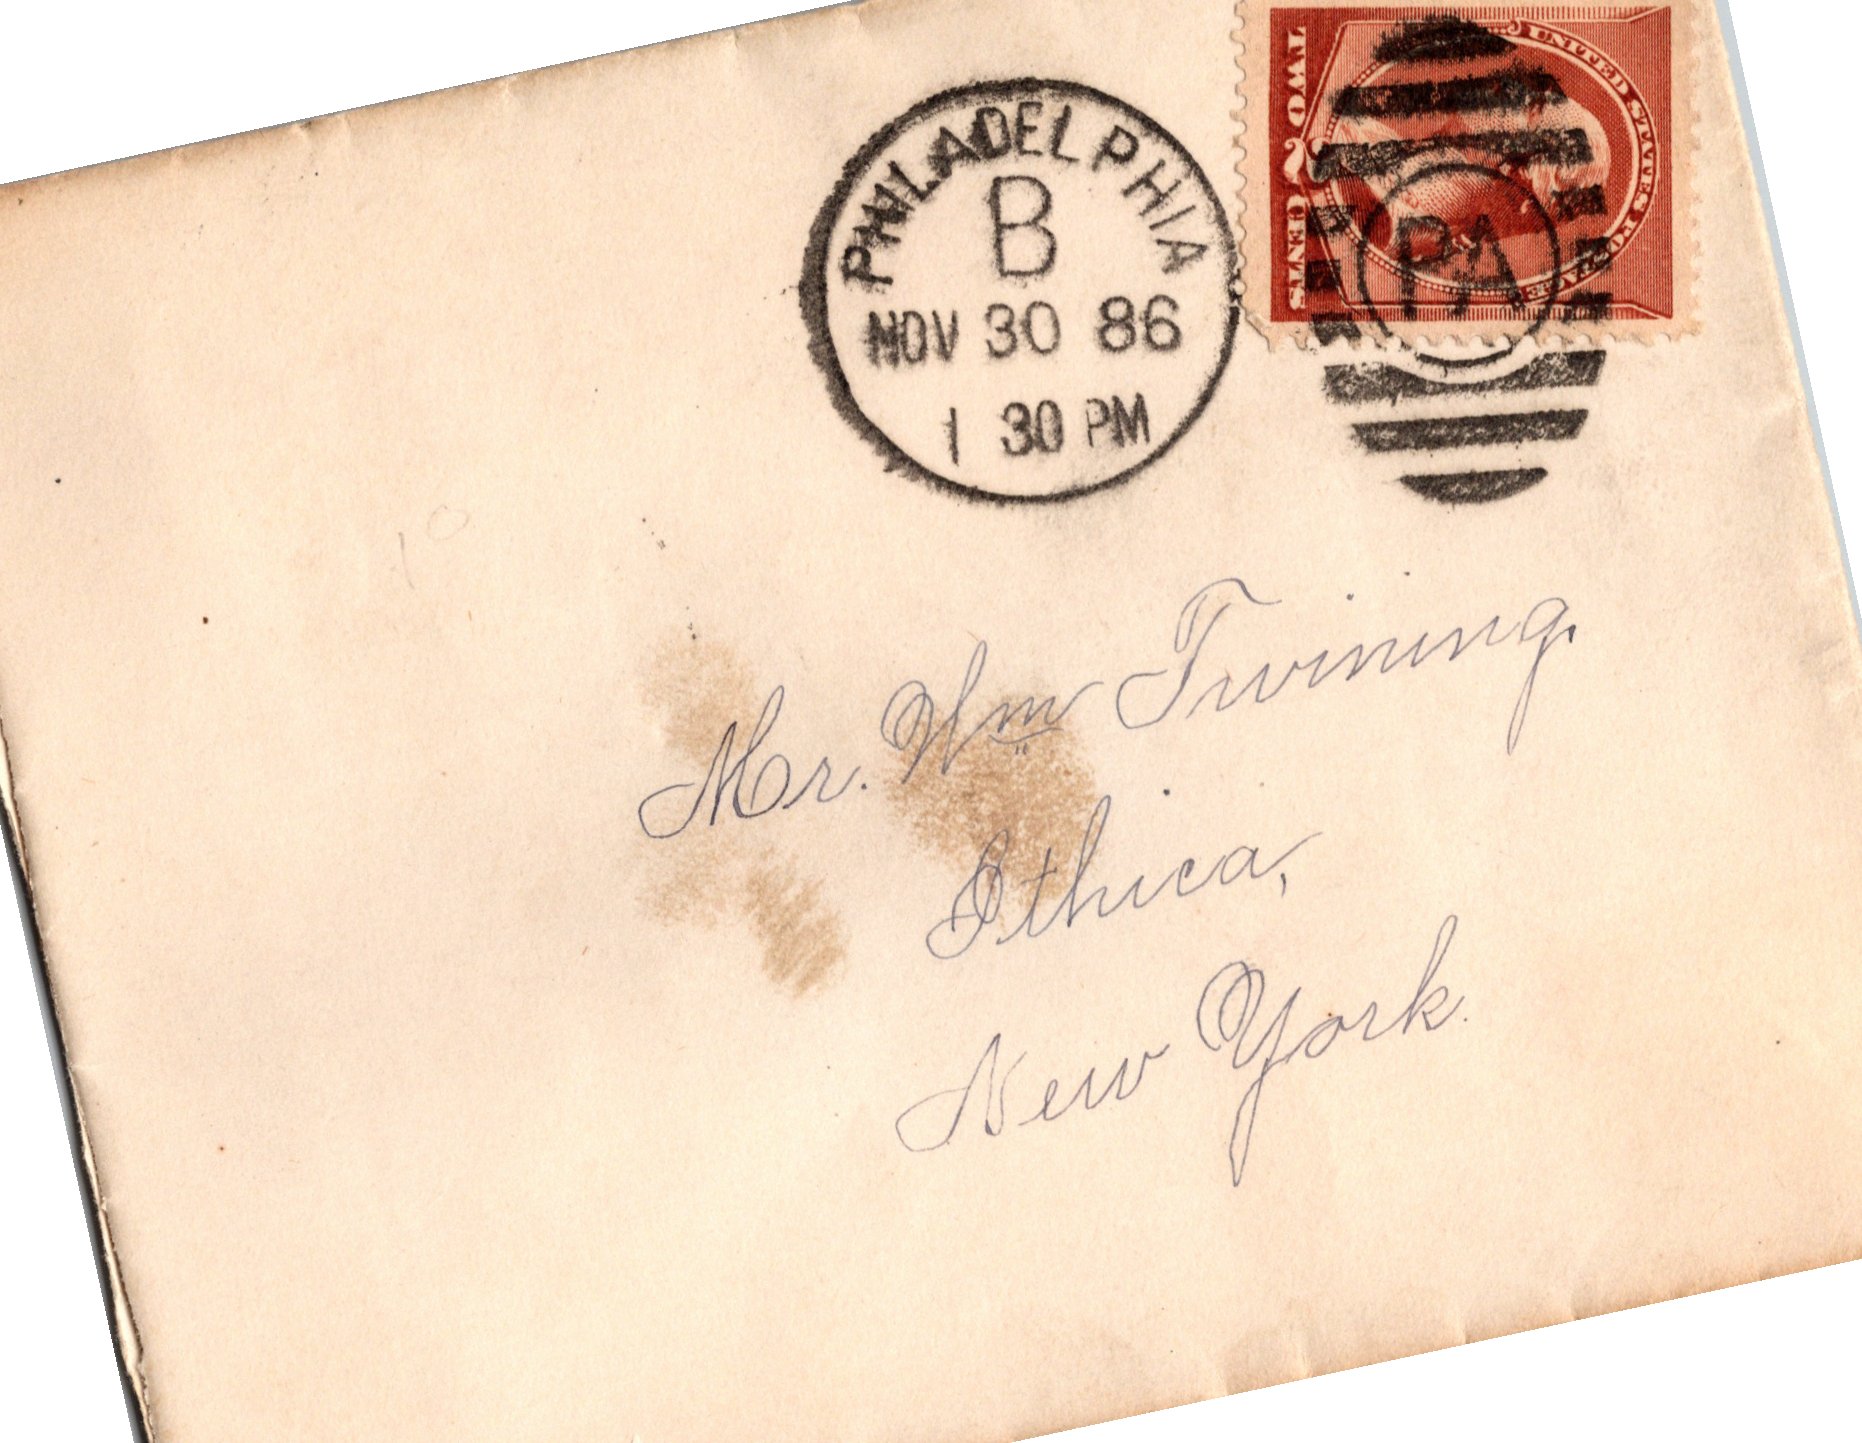 PHILADELPHIA
B
NOV 30 86
1 30 PM
UNITED STATES POSTAGE
TWO 2 CENTS
PA
Mr. Wm Twining.
Ithica,
New York.